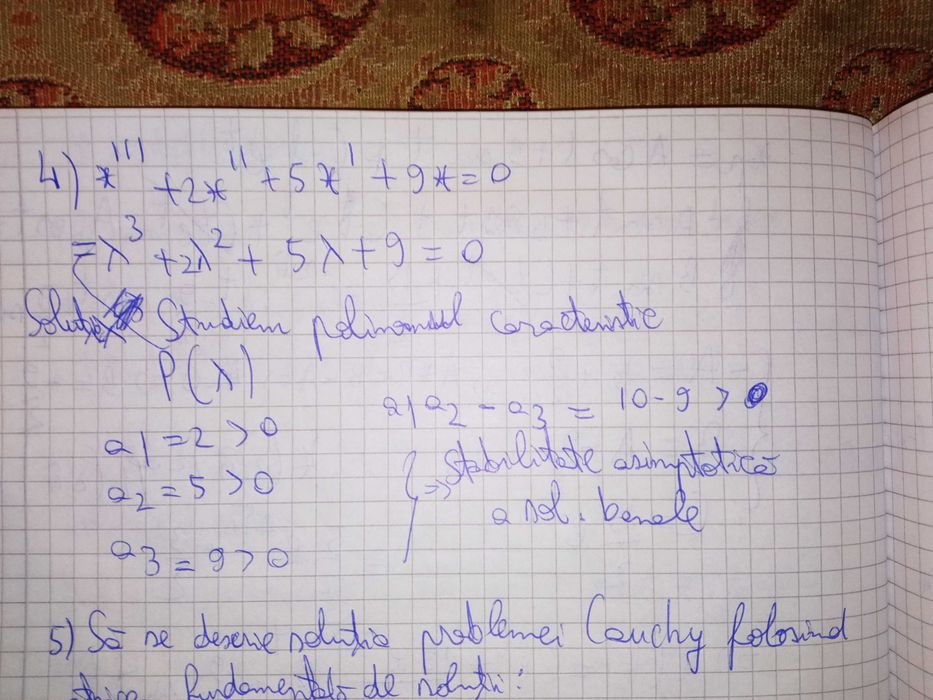 4) x''' + 2x'' + 5x' + 9x = 0
= λ³ + 2λ² + 5λ + 9 = 0
Soluție Studiem polinomul caracteristic
P(λ)
a1 a2 - a3 = 10 - 9 > 0
a1 = 2 > 0
a2 = 5 > 0
a3 = 9 > 0
=> stabilitate asimptotică
a sol. banale
5) Să se descrie soluția problemei Cauchy folosind
fundamentală de soluții: